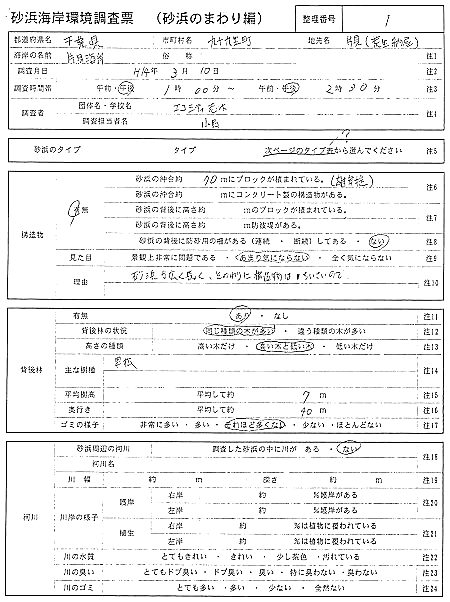 砂浜海岸環境調査票　（砂浜のまわり編）　整理番号　1
都道府県名　千葉県　市町村名　九十九里町　地先名　片貝
海岸の名前　片貝海岸　俗　称　注1
調査月日　H14年　3月　10日　注2
調査時間帯　午前・午後　1時　00分～　午前・午後　2時30分　注3
調査者　団体名・学校名　注4
調査担当者名
砂浜のタイプ　タイプ　次ページのタイプ表から選んでください　注5
構造物　有無　砂浜の沖合約　70　mにブロックが積まれている。　注6
砂浜の沖合約　mにコンクリート製の構造物がある。
砂浜の背後に高さ約　mのブロックが積まれている。　注7
砂浜の背後に高さ約　m防波堤がある。
砂浜の背後に防砂用の柵がある（連続 ・ 断続）してある ・ ない　注8
見た目　景観上非常に問題である ・ あまり気にならない ・ 全く気にならない　注9
理由　砂浜も広く長く、その割に構造物は　ないので　注10
背後林　有無　あり ・ なし　注11
背後林の状況　同じ種類の木が多い ・ 違う種類の木が多い　注12
高さの種類　高い木だけ ・ 高い木と低い木 ・ 低い木だけ　注13
主な樹種　黒松　注14
平均樹高　平均して約　7　m　注15
奥行き　平均して約　40　m　注16
ゴミの様子　非常に多い ・ 多い ・ それほど多くない ・ 少ない ・ ほとんどない　注17
河川　砂浜周辺の河川　調査した砂浜の中に川が　ある ・ ない　注18
河川名
川　幅　約　m　深さ　約　m　注19
川岸の様子　護岸　右岸　約　%護岸がある　注20
左岸　約　%護岸がある
植生　右岸　約　%は植物に覆われている　注21
左岸　約　%は植物に覆われている
川の水質　とてもきれい ・ きれい ・ 少し茶色 ・ 汚れている　注22
川の臭い　とてもドブ臭い ・ ドブ臭い ・ 臭い ・ 特に臭わない ・ 臭わない　注23
川のゴミ　とても多い ・ 多い ・ 少ない ・ 全然ない　注24